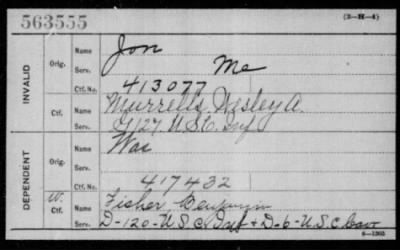 563555 (3-H-4)
INVALID
Orig.
Name Jon
Serv. Me
Ctf. No. 413077
Ctf.
Name Murrells, Wesley A.
Serv. G 127. U.S.C. Inf
DEPENDENT
Orig.
Name War
Serv.
Ctf. No. 417432
W.
Ctf.
Name Fisher Benjamin
Serv. D-120-U.S.C. Inf + D-6-U.S.C. Cav